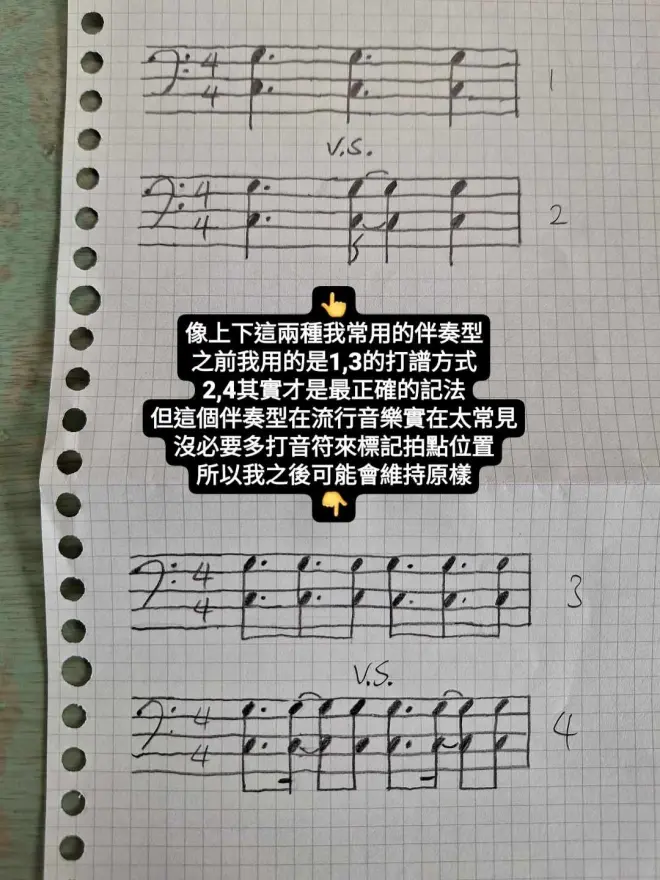 4
4
1
v.s.
4
4
2
👆
像上下這兩種我常用的伴奏型
之前我用的是1,3的打譜方式
2,4其實才是最正確的記法
但這個伴奏型在流行音樂實在太常見
沒必要多打音符來標記拍點位置
所以我之後可能會維持原樣
👇
4
4
3
v.s.
4
4
4